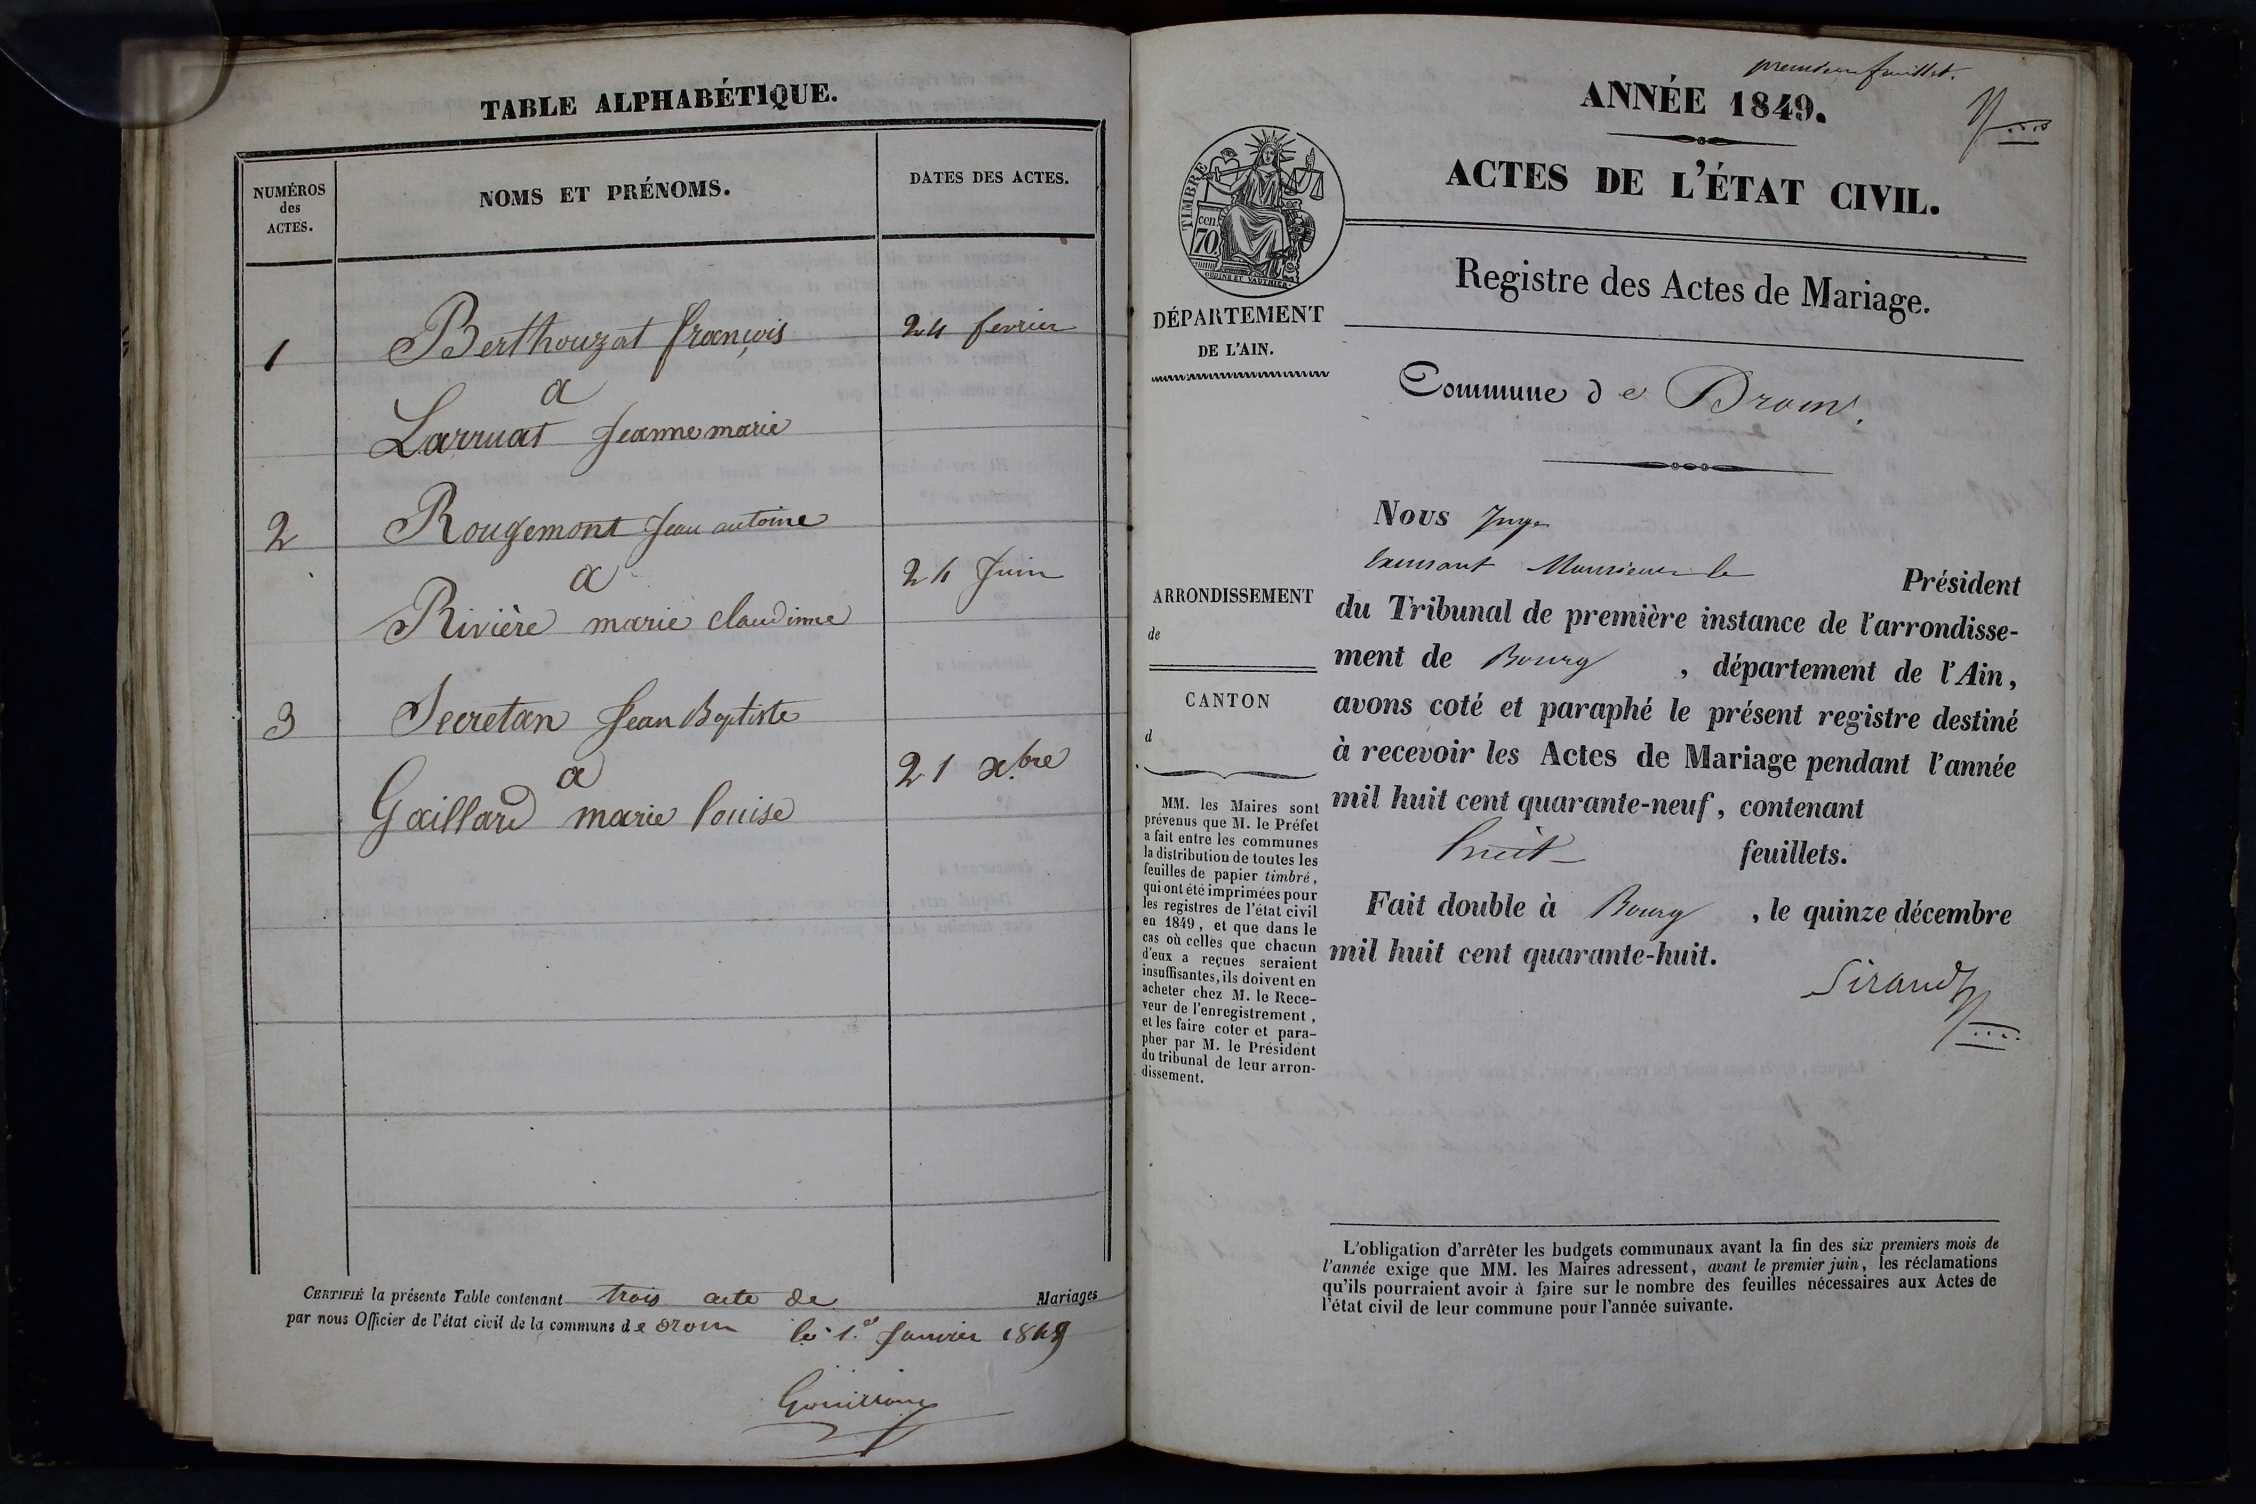 TABLE ALPHABÉTIQUE.
NUMÉROS
des
ACTES.
NOMS ET PRÉNOMS.
DATES DES ACTES.
1
Berthouzat françois
24 fevrier
a
Larruat Jeanne marie
2
Rougemont Jean antoine
a
24 Juin
Rivière marie claudinne
3
Secretan Jean Baptiste
a
21 xbre
Gaillard marie louise
CERTIFIÉ la présente Table contenant trois acte de Mariages
par nous Officier de l'état civil de la commune de drom le 1er Janvier 1849
premier feuillet.
ANNÉE 1849.
ACTES DE L'ÉTAT CIVIL.
TIMBRE
cen
70
OUDINE ET VAUTHIER
Registre des Actes de Mariage.
DÉPARTEMENT
DE L'AIN.
Commune de Drom.
Nous Juge
Monsieur le Président
ARRONDISSEMENT
de
CANTON
d
du Tribunal de première instance de l'arrondisse-
ment de Bourg, département de l'Ain,
avons coté et paraphé le présent registre destiné
à recevoir les Actes de Mariage pendant l'année
mil huit cent quarante-neuf, contenant
huit feuillets.
Fait double à Bourg, le quinze décembre
mil huit cent quarante-huit.
Sirand
MM. les Maires sont
prévenus que M. le Préfet
a fait entre les communes
la distribution de toutes les
feuilles de papier timbré,
qui ont été imprimées pour
les registres de l'état civil
en 1849, et que dans le
cas où celles que chacun
d'eux a reçues seraient
insuffisantes, ils doivent en
acheter chez M. le Rece-
veur de l'enregistrement,
et les faire coter et para-
pher par M. le Président
du tribunal de leur arron-
dissement.
L'obligation d'arrêter les budgets communaux avant la fin des six premiers mois de
l'année exige que MM. les Maires adressent, avant le premier juin, les réclamations
qu'ils pourraient avoir à faire sur le nombre des feuilles nécessaires aux Actes de
l'état civil de leur commune pour l'année suivante.